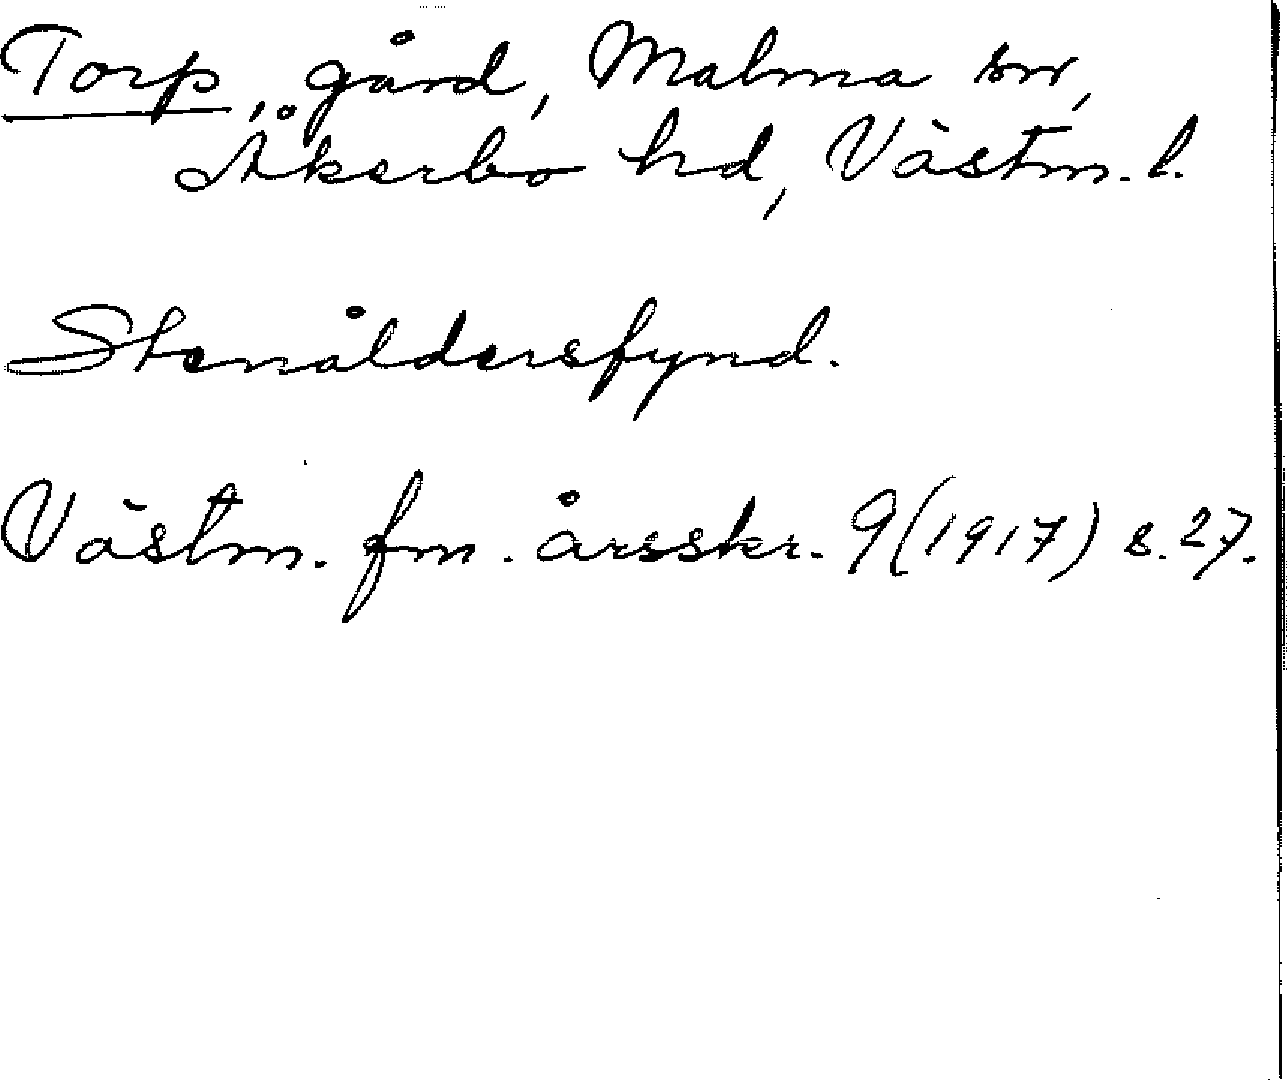 Torp, gård, Malma sn,
Åkerbo hd, Västm. l.
Stenåldersfynd.
Västm. fm. årsskr. 9 (1917) s. 27.